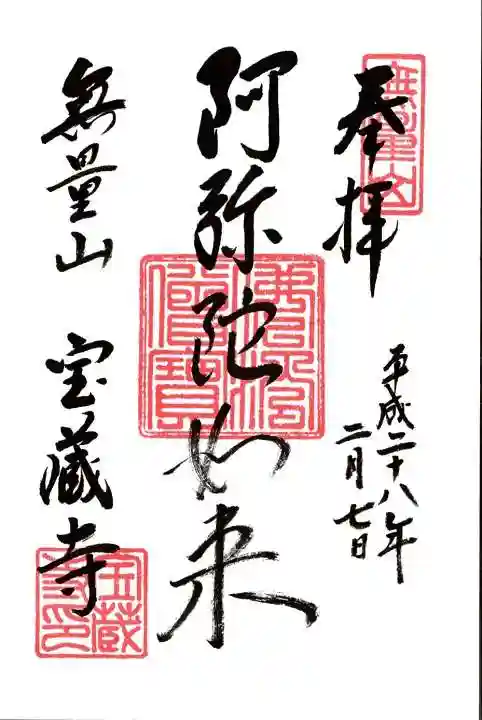 奉拝
平成二十八年
二月七日
阿弥陀如来
無量山 宝蔵寺
無量山
佛法僧寶
宝蔵寺印